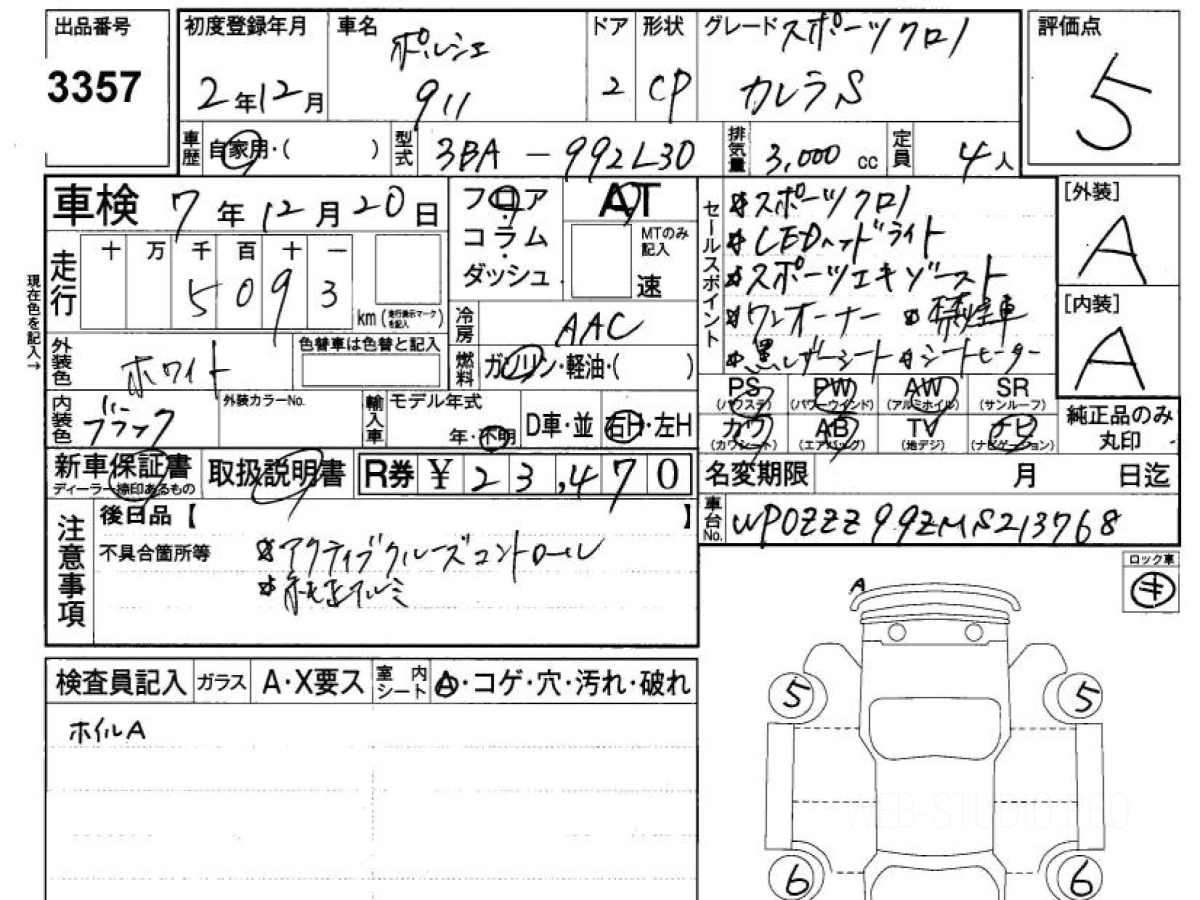 出品番号
3357
初度登録年月
2年12月
車名
ポルシェ
911
ドア
2
形状
CP
グレード スポーツクロノ
カレラS
評価点
5
車歴
自家用・( )
型式
3BA-992L30
排気量
3,000 cc
定員
4人
車検 7年12月20日
フロア・
コラム・
ダッシュ
AT
MTのみ
記入
速
セールスポイント
*スポーツクロノ
*LEDヘッドライト
*スポーツエキゾースト
*ワンオーナー *禁煙車
*黒レザーシート *シートヒーター
[外装]
A
[内装]
A
現在色を記入→
走行
十 万 千 百 十 一
5 0 9 3
km (走行表示マークを記入)
冷房
AAC
外装色
ホワイト
色替車は色替と記入
燃料
ガソリン・軽油・( )
PS (パワステ)
PW (パワーウインド)
AW (アルミホイル)
SR (サンルーフ)
カワ (カワシート)
AB (エアバッグ)
TV (地デジ)
ナビ (ナビゲーション)
純正品のみ
丸印
内装色
ブラック
外装カラーNo.
輸入車
モデル年式
年・不明
D車・並
右H・左H
新車保証書
ディーラー捺印あるもの
取扱説明書
R券 ¥23,470
名変期限 月 日迄
車台No.
WP0ZZZ99ZMS213768
注意事項
後日品【 】
不具合箇所等
*アクティブクルーズコントロール
*純正アルミ
ロック車
キ
検査員記入
ガラス
A・X要ス
室内
シート
A・コゲ・穴・汚れ・破れ
ホイルA
A
5
5
WEB-STUDIO.PRO
6
6